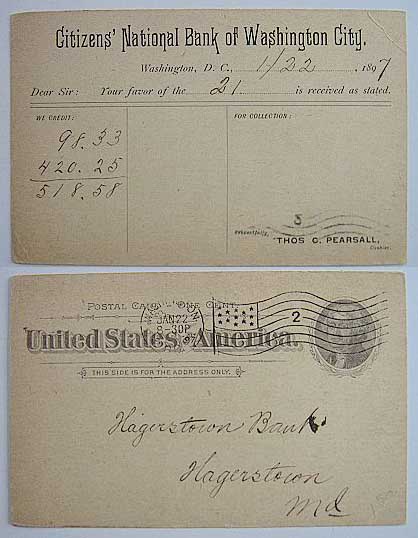 Citizens' National Bank of Washington City.
Washington, D. C., 1/22, 1897
Dear Sir: Your favor of the 21 is received as stated.
WE CREDIT: FOR COLLECTION:
98.33
420.25
518.58
Respectfully,
THOS C. PEARSALL,
Cashier.
POSTAL CARD - ONE CENT.
JAN 22
8-30P
2
United States of America.
THIS SIDE IS FOR THE ADDRESS ONLY.
Hagerstown Bank
Hagerstown
Md